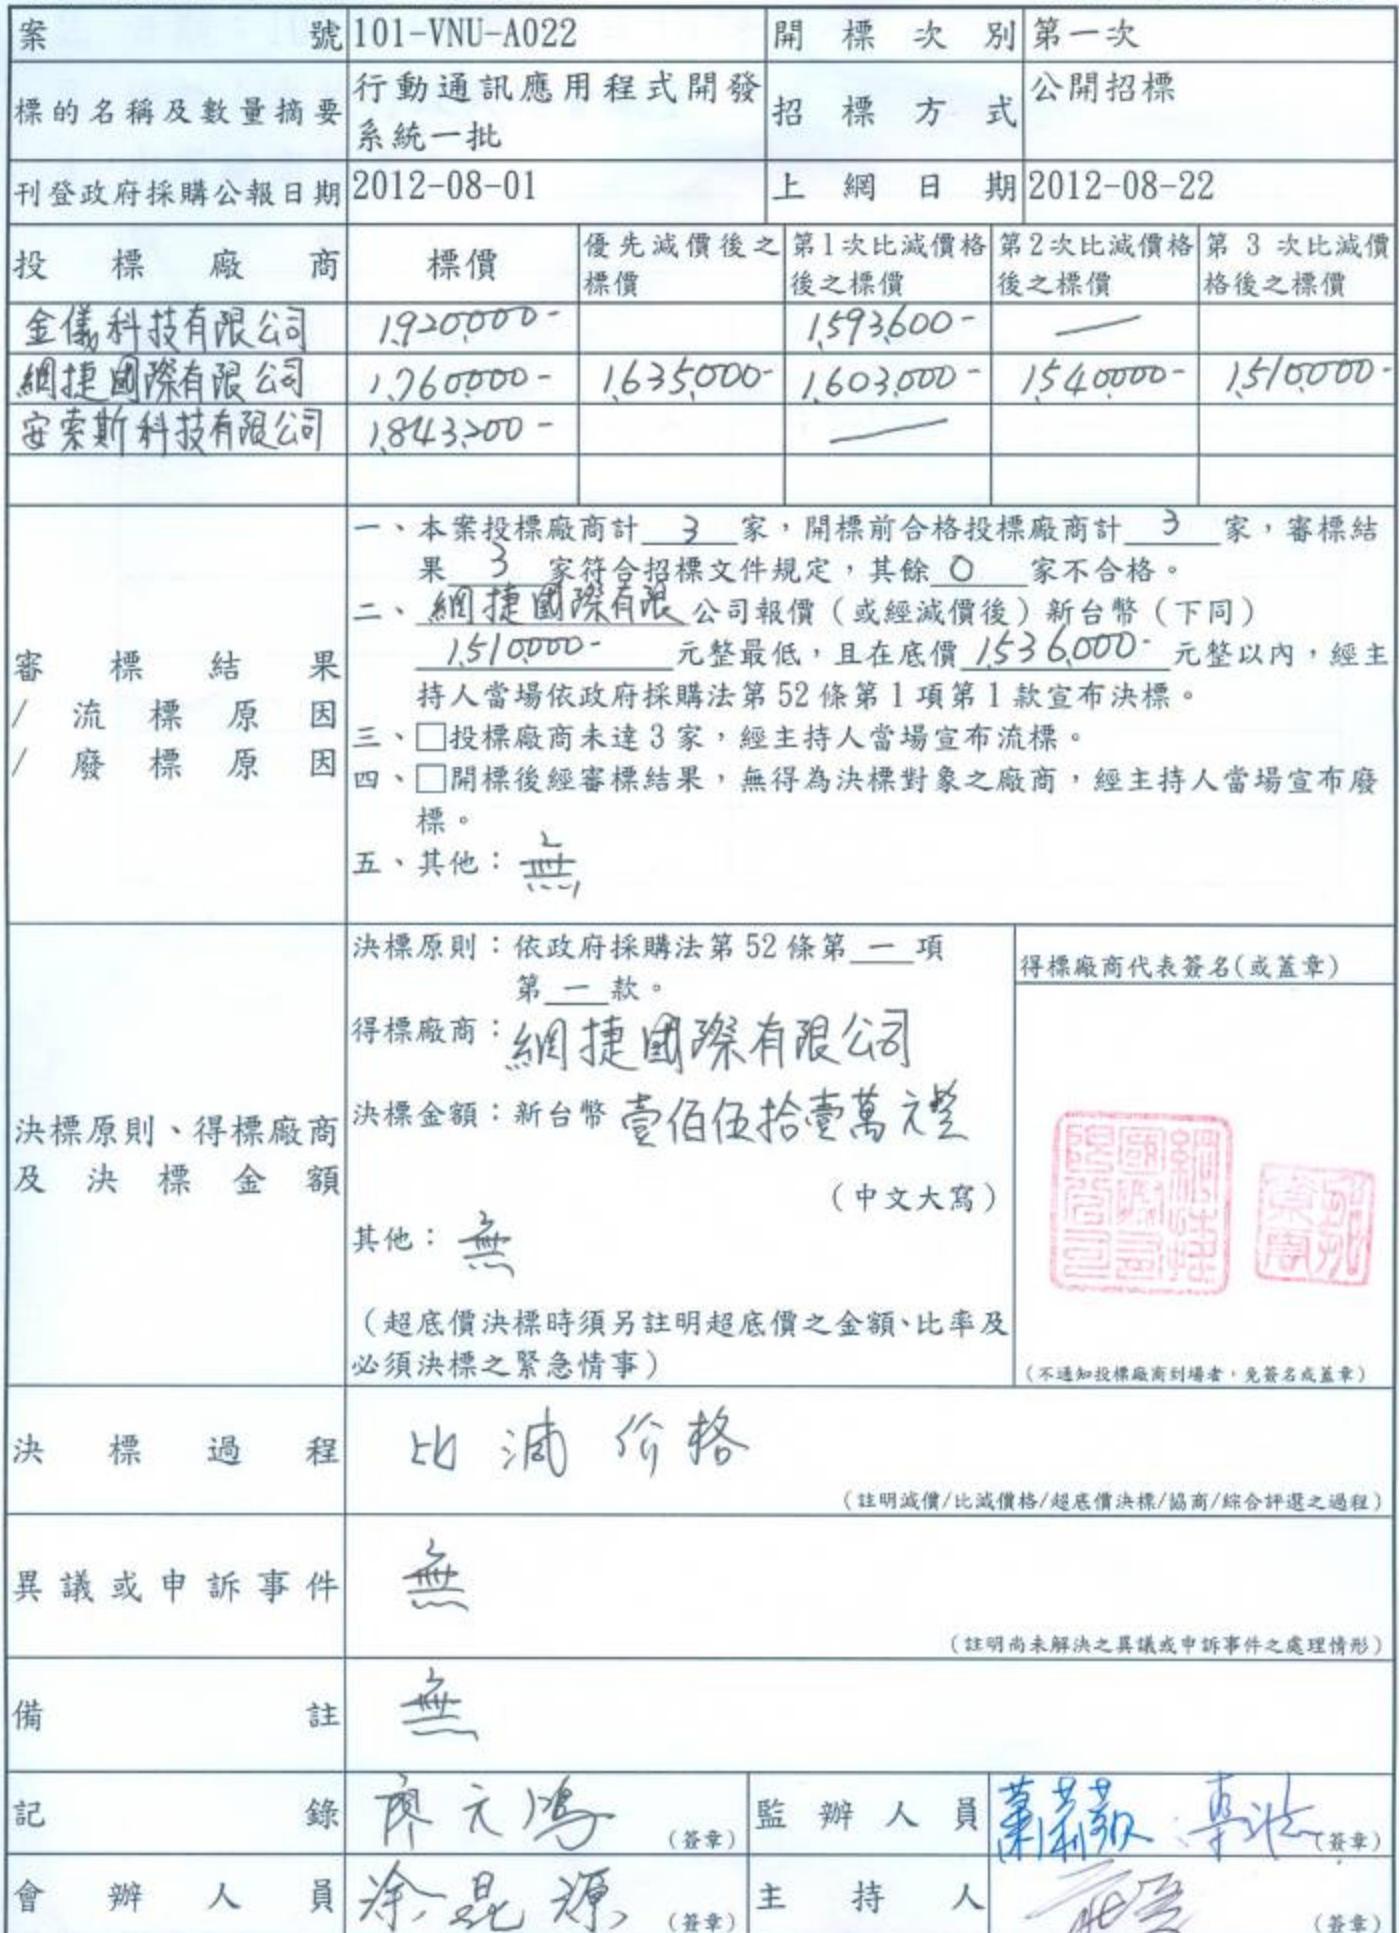 案號 101-VNU-A022 開標次別 第一次
標的名稱及數量摘要 行動通訊應用程式開發 招標方式 公開招標
系統一批
刊登政府採購公報日期 2012-08-01 上網日期 2012-08-22
投標廠商 標價 優先減價後之 第1次比減價格 第2次比減價格 第3次比減價
標價 後之標價 後之標價 格後之標價
金儀科技有限公司 1,920,000- 1,593,600- —
網捷國際有限公司 1,760,000- 1,635,000- 1,603,000- 1,540,000- 1,510,000-
安索斯科技有限公司 1,843,200- —
審標結果
/流標原因
/廢標原因
一、本案投標廠商計 3 家,開標前合格投標廠商計 3 家,審標結
果 3 家符合招標文件規定,其餘 0 家不合格。
二、網捷國際有限公司報價(或經減價後)新台幣(下同)
1,510,000- 元整最低,且在底價 1,536,000- 元整以內,經主
持人當場依政府採購法第52條第1項第1款宣布決標。
三、□投標廠商未達3家,經主持人當場宣布流標。
四、□開標後經審標結果,無得為決標對象之廠商,經主持人當場宣布廢
標。
五、其他:無
決標原則、得標廠商
及決標金額
決標原則:依政府採購法第52條第 一 項
第 一 款。
得標廠商:網捷國際有限公司
決標金額:新台幣 壹佰伍拾壹萬元整
(中文大寫)
其他:無
(超底價決標時須另註明超底價之金額、比率及
必須決標之緊急情事)
得標廠商代表簽名(或蓋章)
網捷
國際有
限公司
(不通知投標廠商到場者,免簽名或蓋章)
決標過程 比減价格
(註明減價/比減價格/超底價決標/協商/綜合評選之過程)
異議或申訴事件 無
(註明尚未解決之異議或申訴事件之處理情形)
備註 無
記錄 廖元鴻 (簽章) 監辦人員 (簽章)
會辦人員 涂昆源 (簽章) 主持人 (簽章)